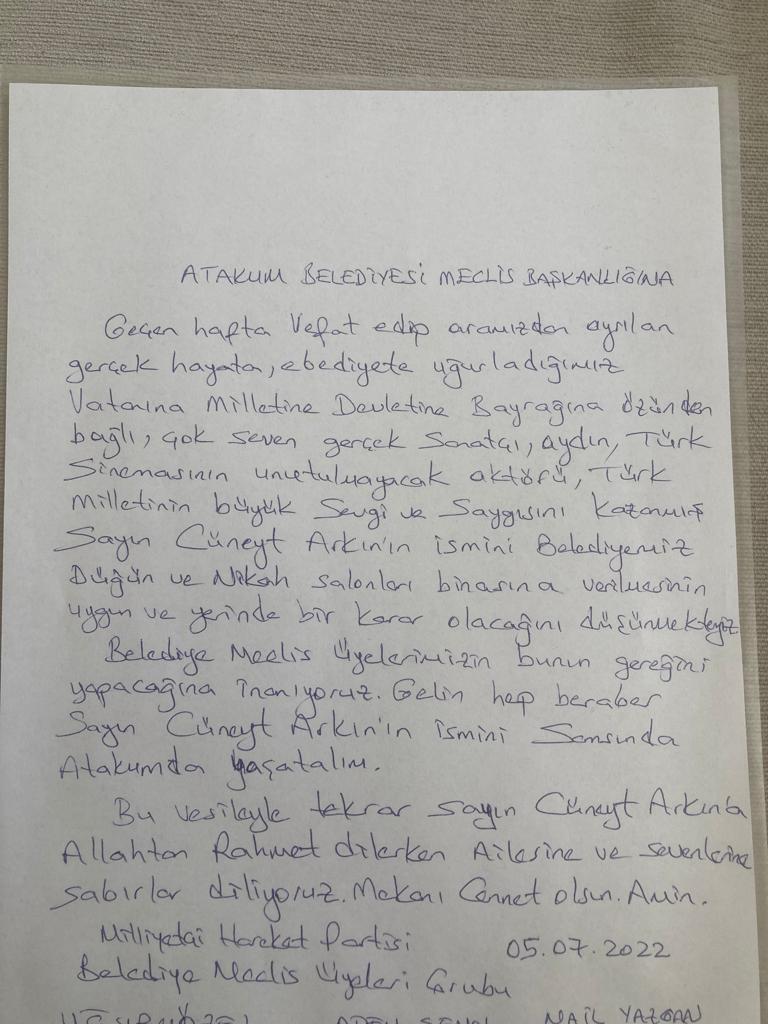 ATAKUM BELEDİYESİ MECLİS BAŞKANLIĞINA
Geçen hafta Vefat edip aramızdan ayrılan
gerçek hayata, ebediyete uğurladığımız
Vatanına Milletine Devletine Bayrağına özünden
bağlı, çok seven gerçek Sanatçı, aydın, Türk
Sinemasının unutulmayacak aktörü, Türk
Milletinin büyük Sevgi ve Saygısını Kazanmış
Sayın Cüneyt Arkın'ın ismini Belediyemiz
Düğün ve Nikah salonları binasına verilmesinin
uygun ve yerinde bir karar olacağını düşünmekteyiz
Belediye Meclis Üyelerimizin bunun gereğini
yapacağına inanıyoruz. Gelin hep beraber
Sayın Cüneyt Arkın'ın ismini Samsunda
Atakumda yaşatalım.
Bu vesileyle tekrar sayın Cüneyt Arkın'a
Allahtan Rahmet dilerken Ailesine ve sevenlerine
sabırlar diliyoruz. Mekanı Cennet olsun. Amin.
Milliyetçi Hareket Partisi 05.07.2022
Belediye Meclis Üyeleri Grubu
NAİL YAZGAN